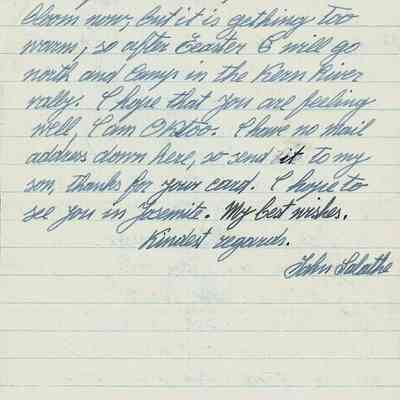 bloom now, but it is gething too
warm, so after Easter I will go
north and Camp in the Kern River
vally. I hope that you are feeling
well, I am OKtoo. I have no mail
address down here, so send it to my
son, thanks for your card. I hope to
see you in Yosemite. My best wishes.
Kindest regards.
John Salathe